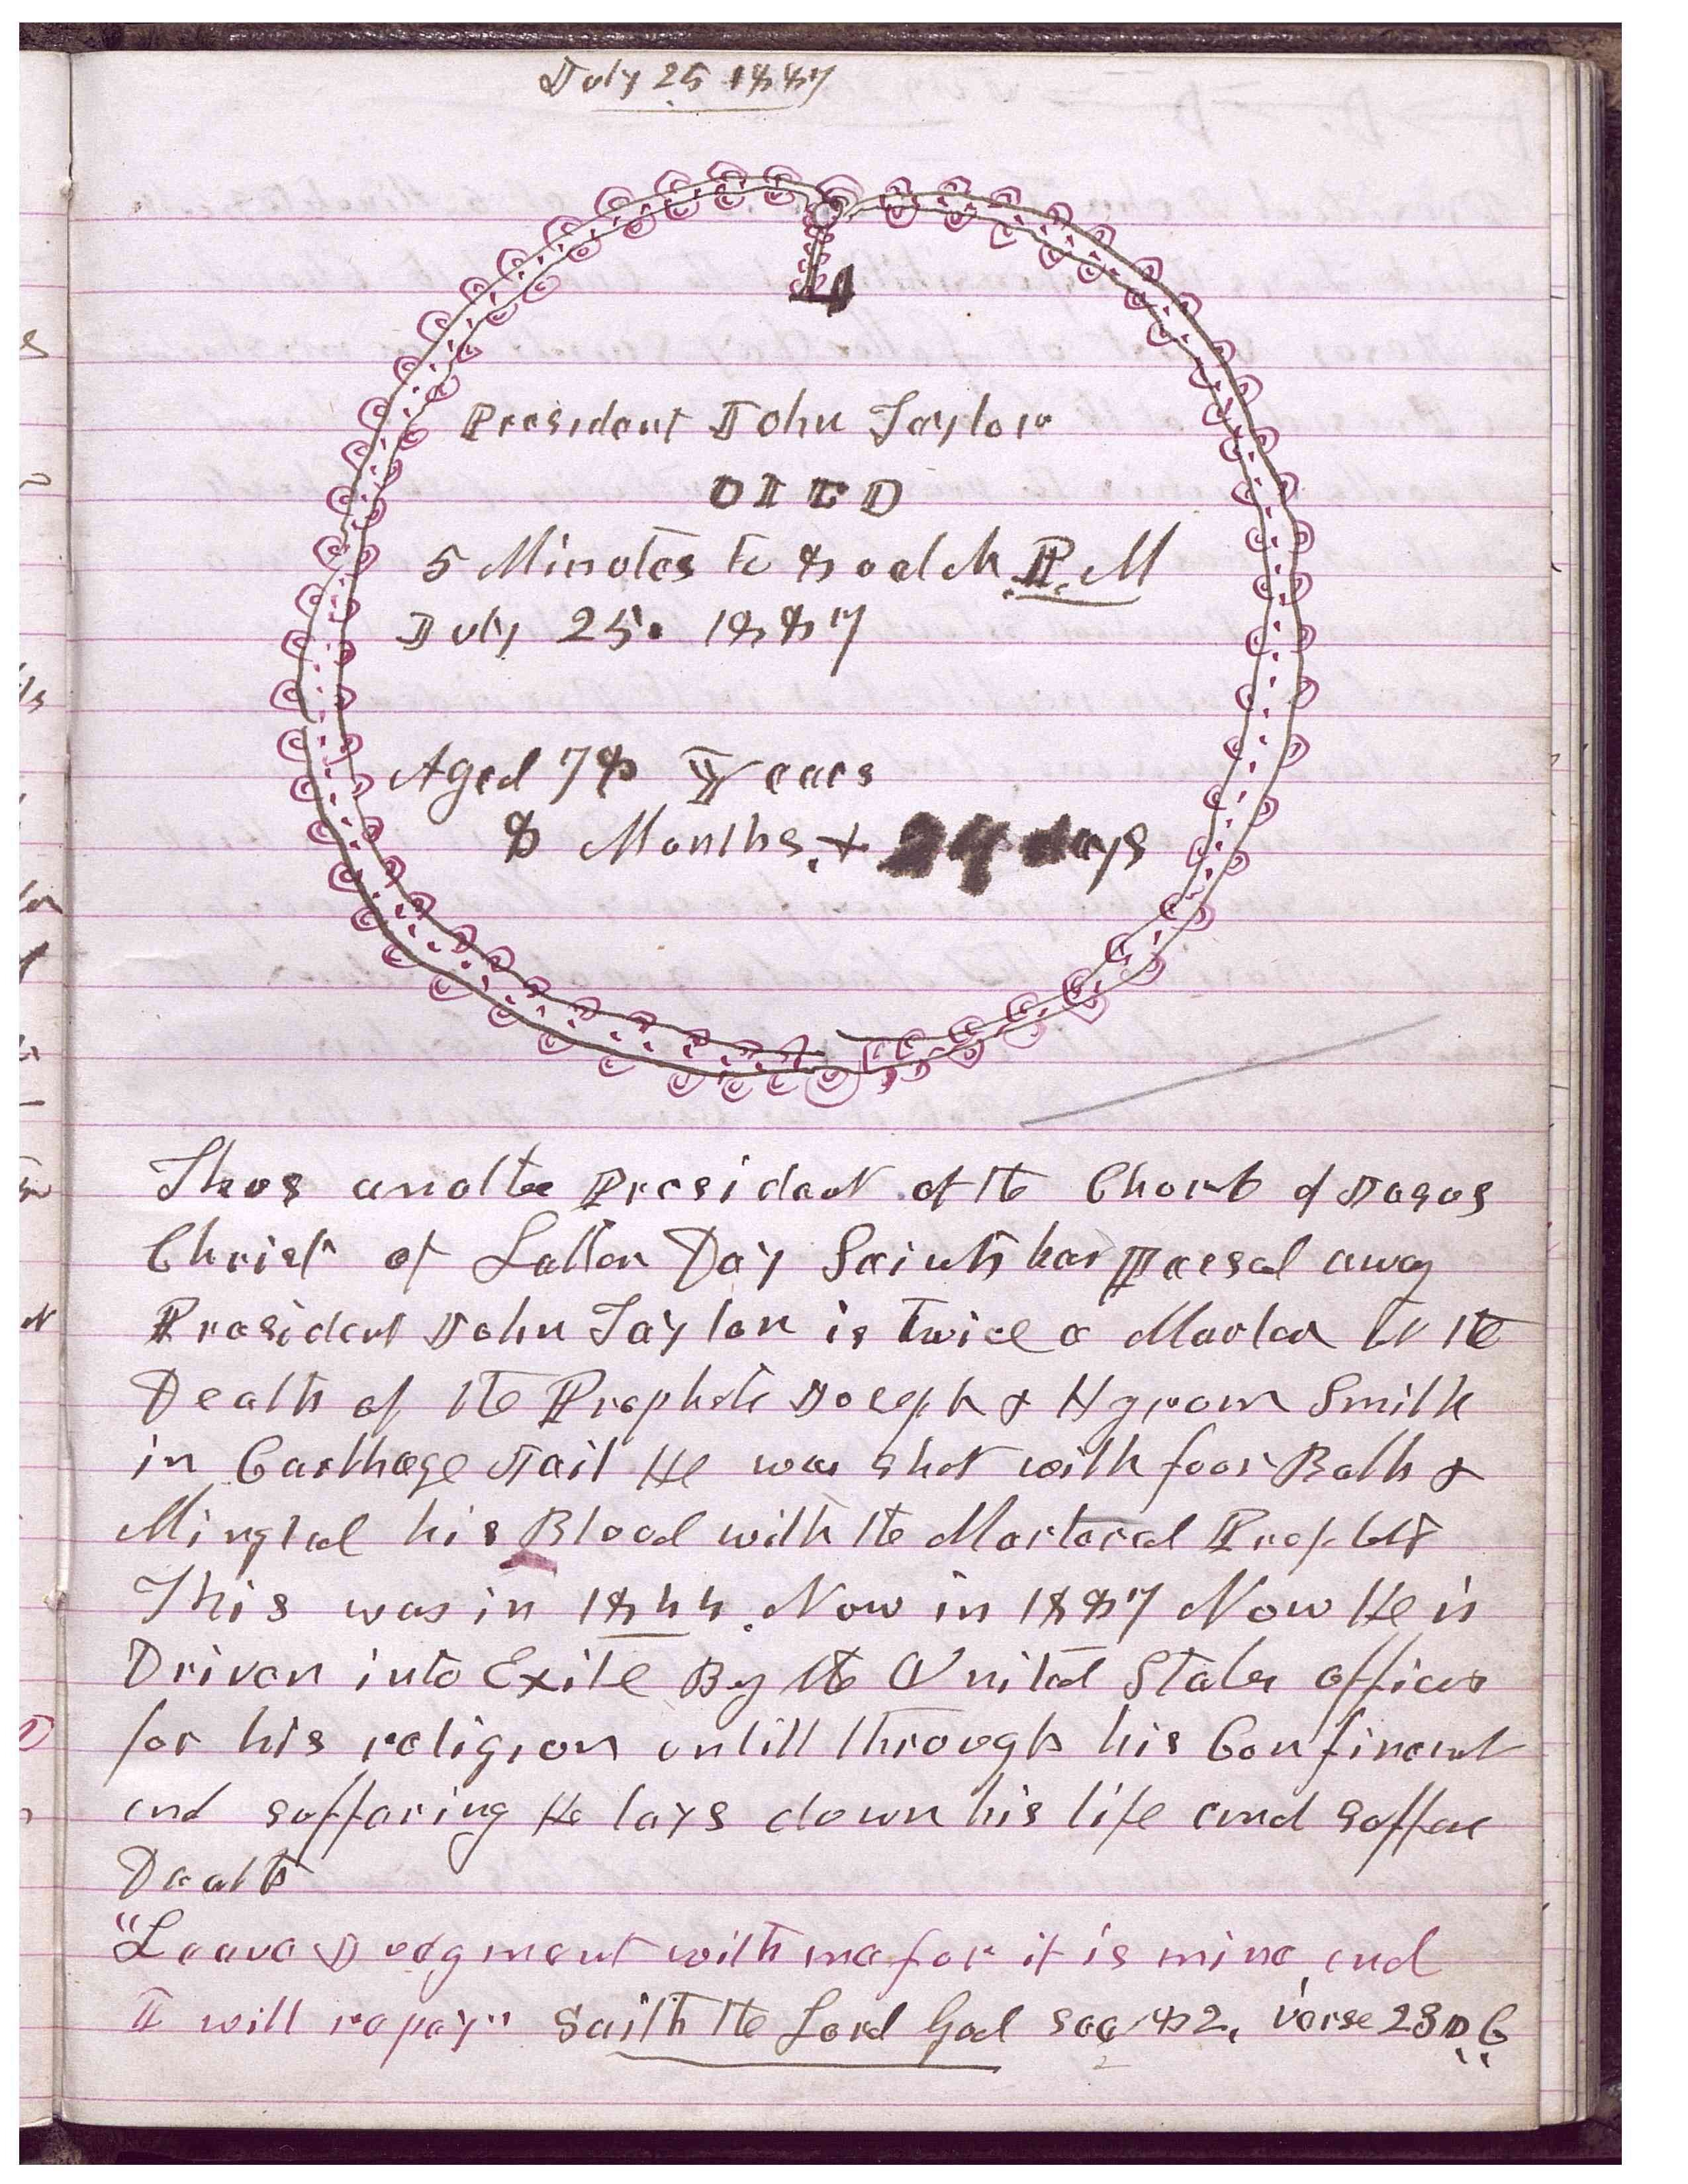 July 25 1887
President John Taylor
DIED
5 Minutes to 8 oclok P.M
July 25. 1887
Aged 78 Years
8 Months, + 24 days
Thus another President of the Church of Jesus
Christ of Latter Day Saints has Passed away
President John Taylor is twice a Marter At the
Death of the Prophets Joseph & Hyrom Smith
in Carthage Jail He was shot with four Balls &
Mingled his Blood with the Martered Prophet
This was in 1844. Now in 1887 Now He is
Driven into Exile By the United States officers
for his religion untill through his Confinemt
and suffering He lays down his life and suffers
Death
"Leave Judgment with me for it is mine and
I will repay" Saith the Lord God sec 82, verse 23 D.C.